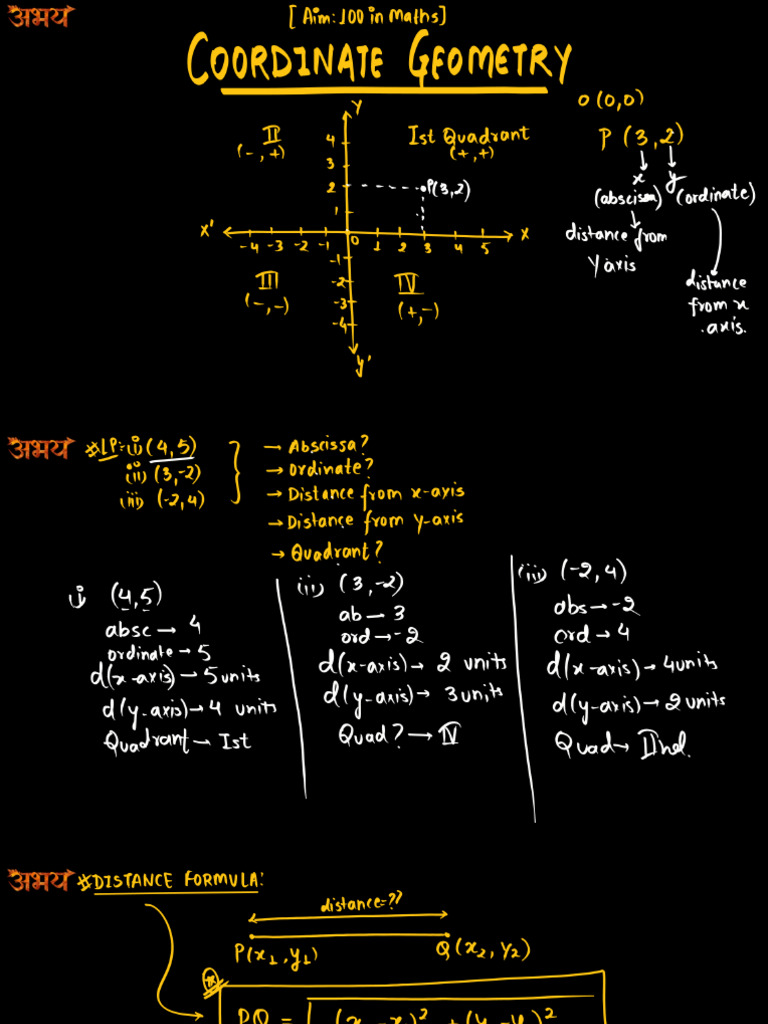 अभय
[Aim: 100 in Maths]
COORDINATE GEOMETRY
O (0,0)
P (3,2)
x y
(abscissa) (ordinate)
distance from
Y axis
distance
from x
axis.
Y
II
(-, +)
Ist Quadrant
(+, +)
4
3
2
1
P(3,2)
X'
-4 -3 -2 -1 0 1 2 3 4 5
X
-1
-2
-3
-4
III
(-, -)
IV
(+, -)
Y'
अभय
# LP:- i) (4, 5)
(ii) (3, -2)
(iii) (-2, 4)
→ Abscissa?
→ Ordinate?
→ Distance from x-axis
→ Distance from y-axis
→ Quadrant?
i) (4, 5)
absc → 4
ordinate → 5
d(x-axis) → 5 units
d(y-axis) → 4 units
Quadrant → Ist
(ii) (3, -2)
ab → 3
ord → -2
d(x-axis) → 2 units
d(y-axis) → 3 units
Quad? → IV
(iii) (-2, 4)
abs → -2
ord → 4
d(x-axis) → 4 units
d(y-axis) → 2 units
Quad → IInd.
अभय
# DISTANCE FORMULA:
distance=??
P(x₁, y₁) Q(x₂, y₂)